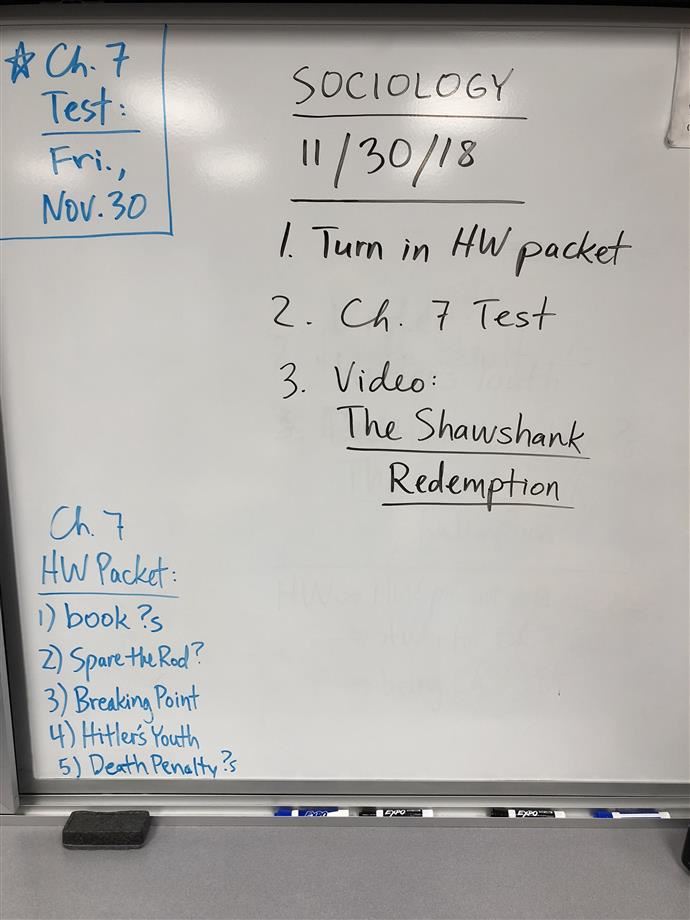 ☆ Ch. 7
Test:
Fri.,
Nov. 30
SOCIOLOGY
11/30/18
1. Turn in HW packet
2. Ch. 7 Test
3. Video:
The Shawshank
Redemption
Ch. 7
HW Packet:
1) book ?s
2) Spare the Rod?
3) Breaking Point
4) Hitler's Youth
5) Death Penalty ?s
EXPO
EXPO
EXPO